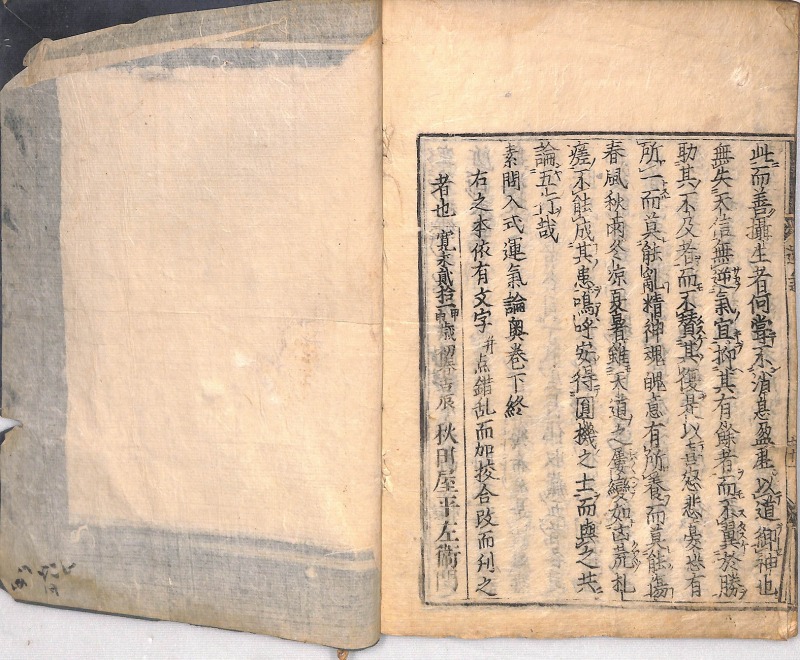 此而善攝生者何嘗不消息盈虛以道御神也
無失天信無逆氣宜抑其有餘者而不翼於勝
助其不及者而不贊其復是以喜怒悲憂恐有
所一而莫能亂精神魂魄意有所養而莫能傷
春風秋雨冬凉夏暑雖天道之屢變如凶荒札
瘥不能成其患嗚呼安得圓機之士而與之共
論五行哉
素問入式運氣論奧巻下終
右之本依有文字并点錯乱而加挍合改而刋之
者也 寛永貳拾一甲申歳 吉辰 秋田屋平左衛門